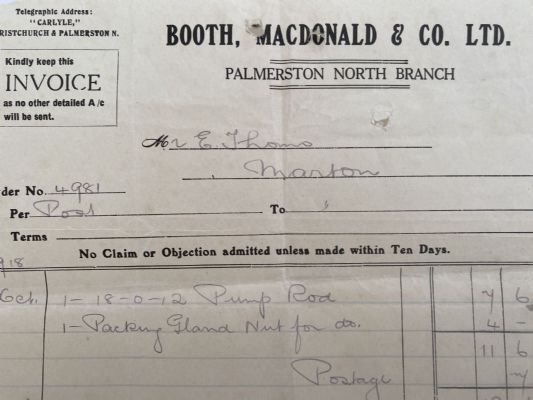 Telegraphic Address:
"CARLYLE,"
RISTCHURCH & PALMERSTON N.
Kindly keep this
INVOICE
as no other detailed A/c
will be sent.
BOOTH, MACDONALD & CO. LTD.
PALMERSTON NORTH BRANCH
Mr E. Thoms
Marton
der No. 4981
Per Post To
Terms
No Claim or Objection admitted unless made within Ten Days.
918
Oct. 1 - 18-0-12 Pump Rod 7 6
1 - Packing Gland Nut for do. 4 -
11 6
Postage